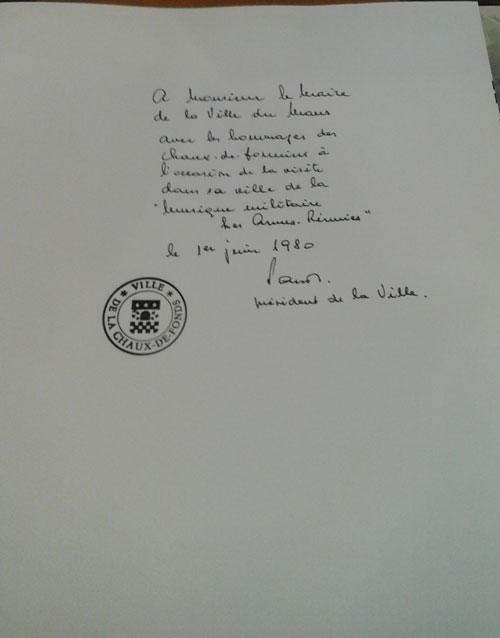 A Monsieur le Maire
de la Ville du Mans
avec les hommages des
chaux-de-fonniers à
l'occasion de la visite
dans sa ville de la
"Musique militaire
Les Armes-Réunies"
le 1er juin 1980
président de la Ville.
VILLE
DE LA CHAUX-DE-FONDS